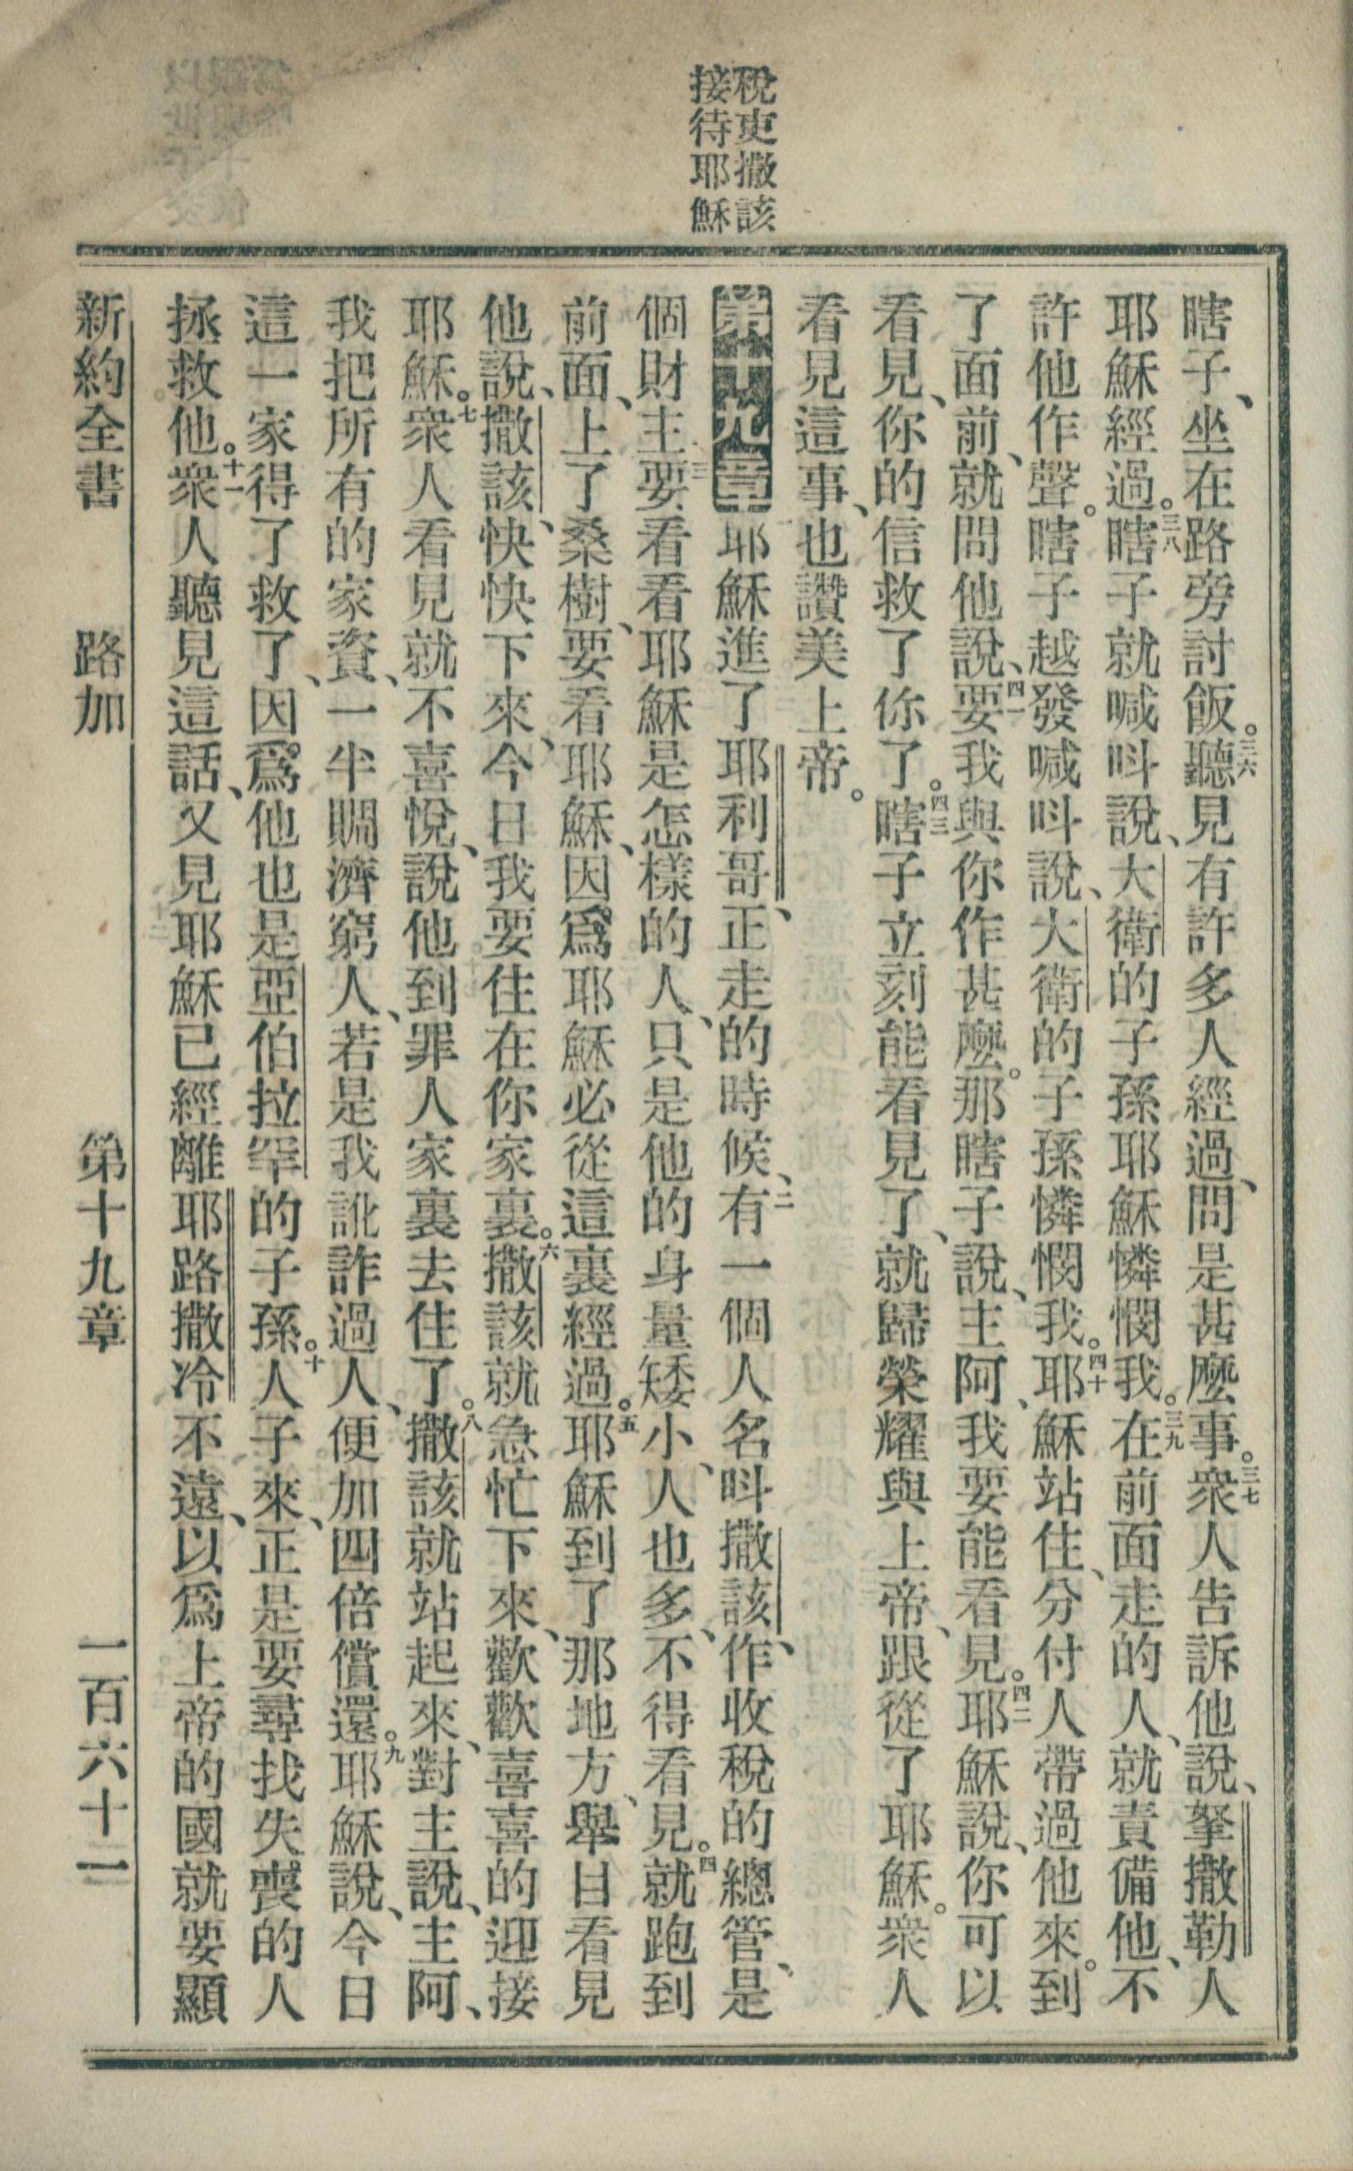 稅吏撒該
接待耶穌
瞎子、坐在路旁討飯。三六聽見有許多人經過、問是甚麼事。三七衆人告訴他說、拏撒勒人
耶穌經過。三八瞎子就喊呌說、大衛的子孫耶穌憐憫我。三九在前面走的人、就責備他、不
許他作聲。瞎子越發喊呌說、大衛的子孫憐憫我。四十耶穌站住、分付人帶過他來。到
了面前、就問他說、四一要我與你作甚麼。那瞎子說、主阿、我要能看見。四二耶穌說、你可以
看見、你的信救了你了。四三瞎子立刻能看見了、就歸榮耀與上帝、跟從了耶穌。衆人
看見這事、也讚美上帝。
第十九章耶穌進了耶利哥、正走的時候、二有一個人名呌撒該、作收稅的總管、是
個財主、三要看看耶穌是怎樣的人、只是他的身量矮小、人也多、不得看見。四就跑到
前面、上了桑樹、要看耶穌、因爲耶穌必從這裏經過。五耶穌到了那地方、舉目看見
他說、撒該、快快下來、今日我要住在你家裏。六撒該就急忙下來、歡歡喜喜的迎接
耶穌。七衆人看見就不喜悅、說他到罪人家裏去住了。八撒該就站起來、對主說、主阿、
我把所有的家資、一半賙濟窮人、若是我訛詐過人、便加四倍償還。九耶穌說、今日
這一家得了救了、因爲他也是亞伯拉罕的子孫。十人子來、正是要尋找失喪的人
拯救他。十一衆人聽見這話、又見耶穌已經離耶路撒冷不遠、以爲上帝的國就要顯
新約全書 路加 第十九章 一百六十二